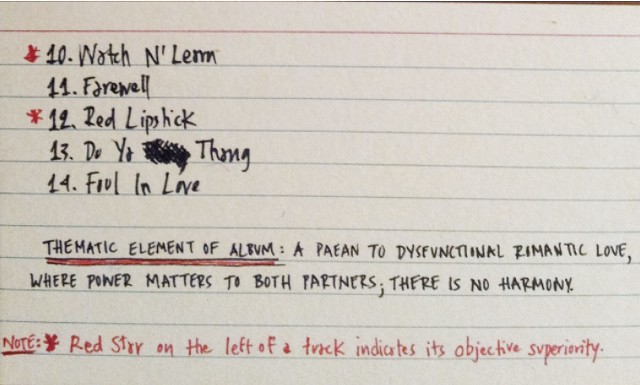 * 10. Watch N' Learn
11. Farewell
* 12. Red Lipstick
13. Do Ya Thang
14. Fool In Love
THEMATIC ELEMENT OF ALBUM: A PAEAN TO DYSFUNCTIONAL ROMANTIC LOVE,
WHERE POWER MATTERS TO BOTH PARTNERS; THERE IS NO HARMONY.
NOTE: * Red Star on the left of a track indicates its objective superiority.